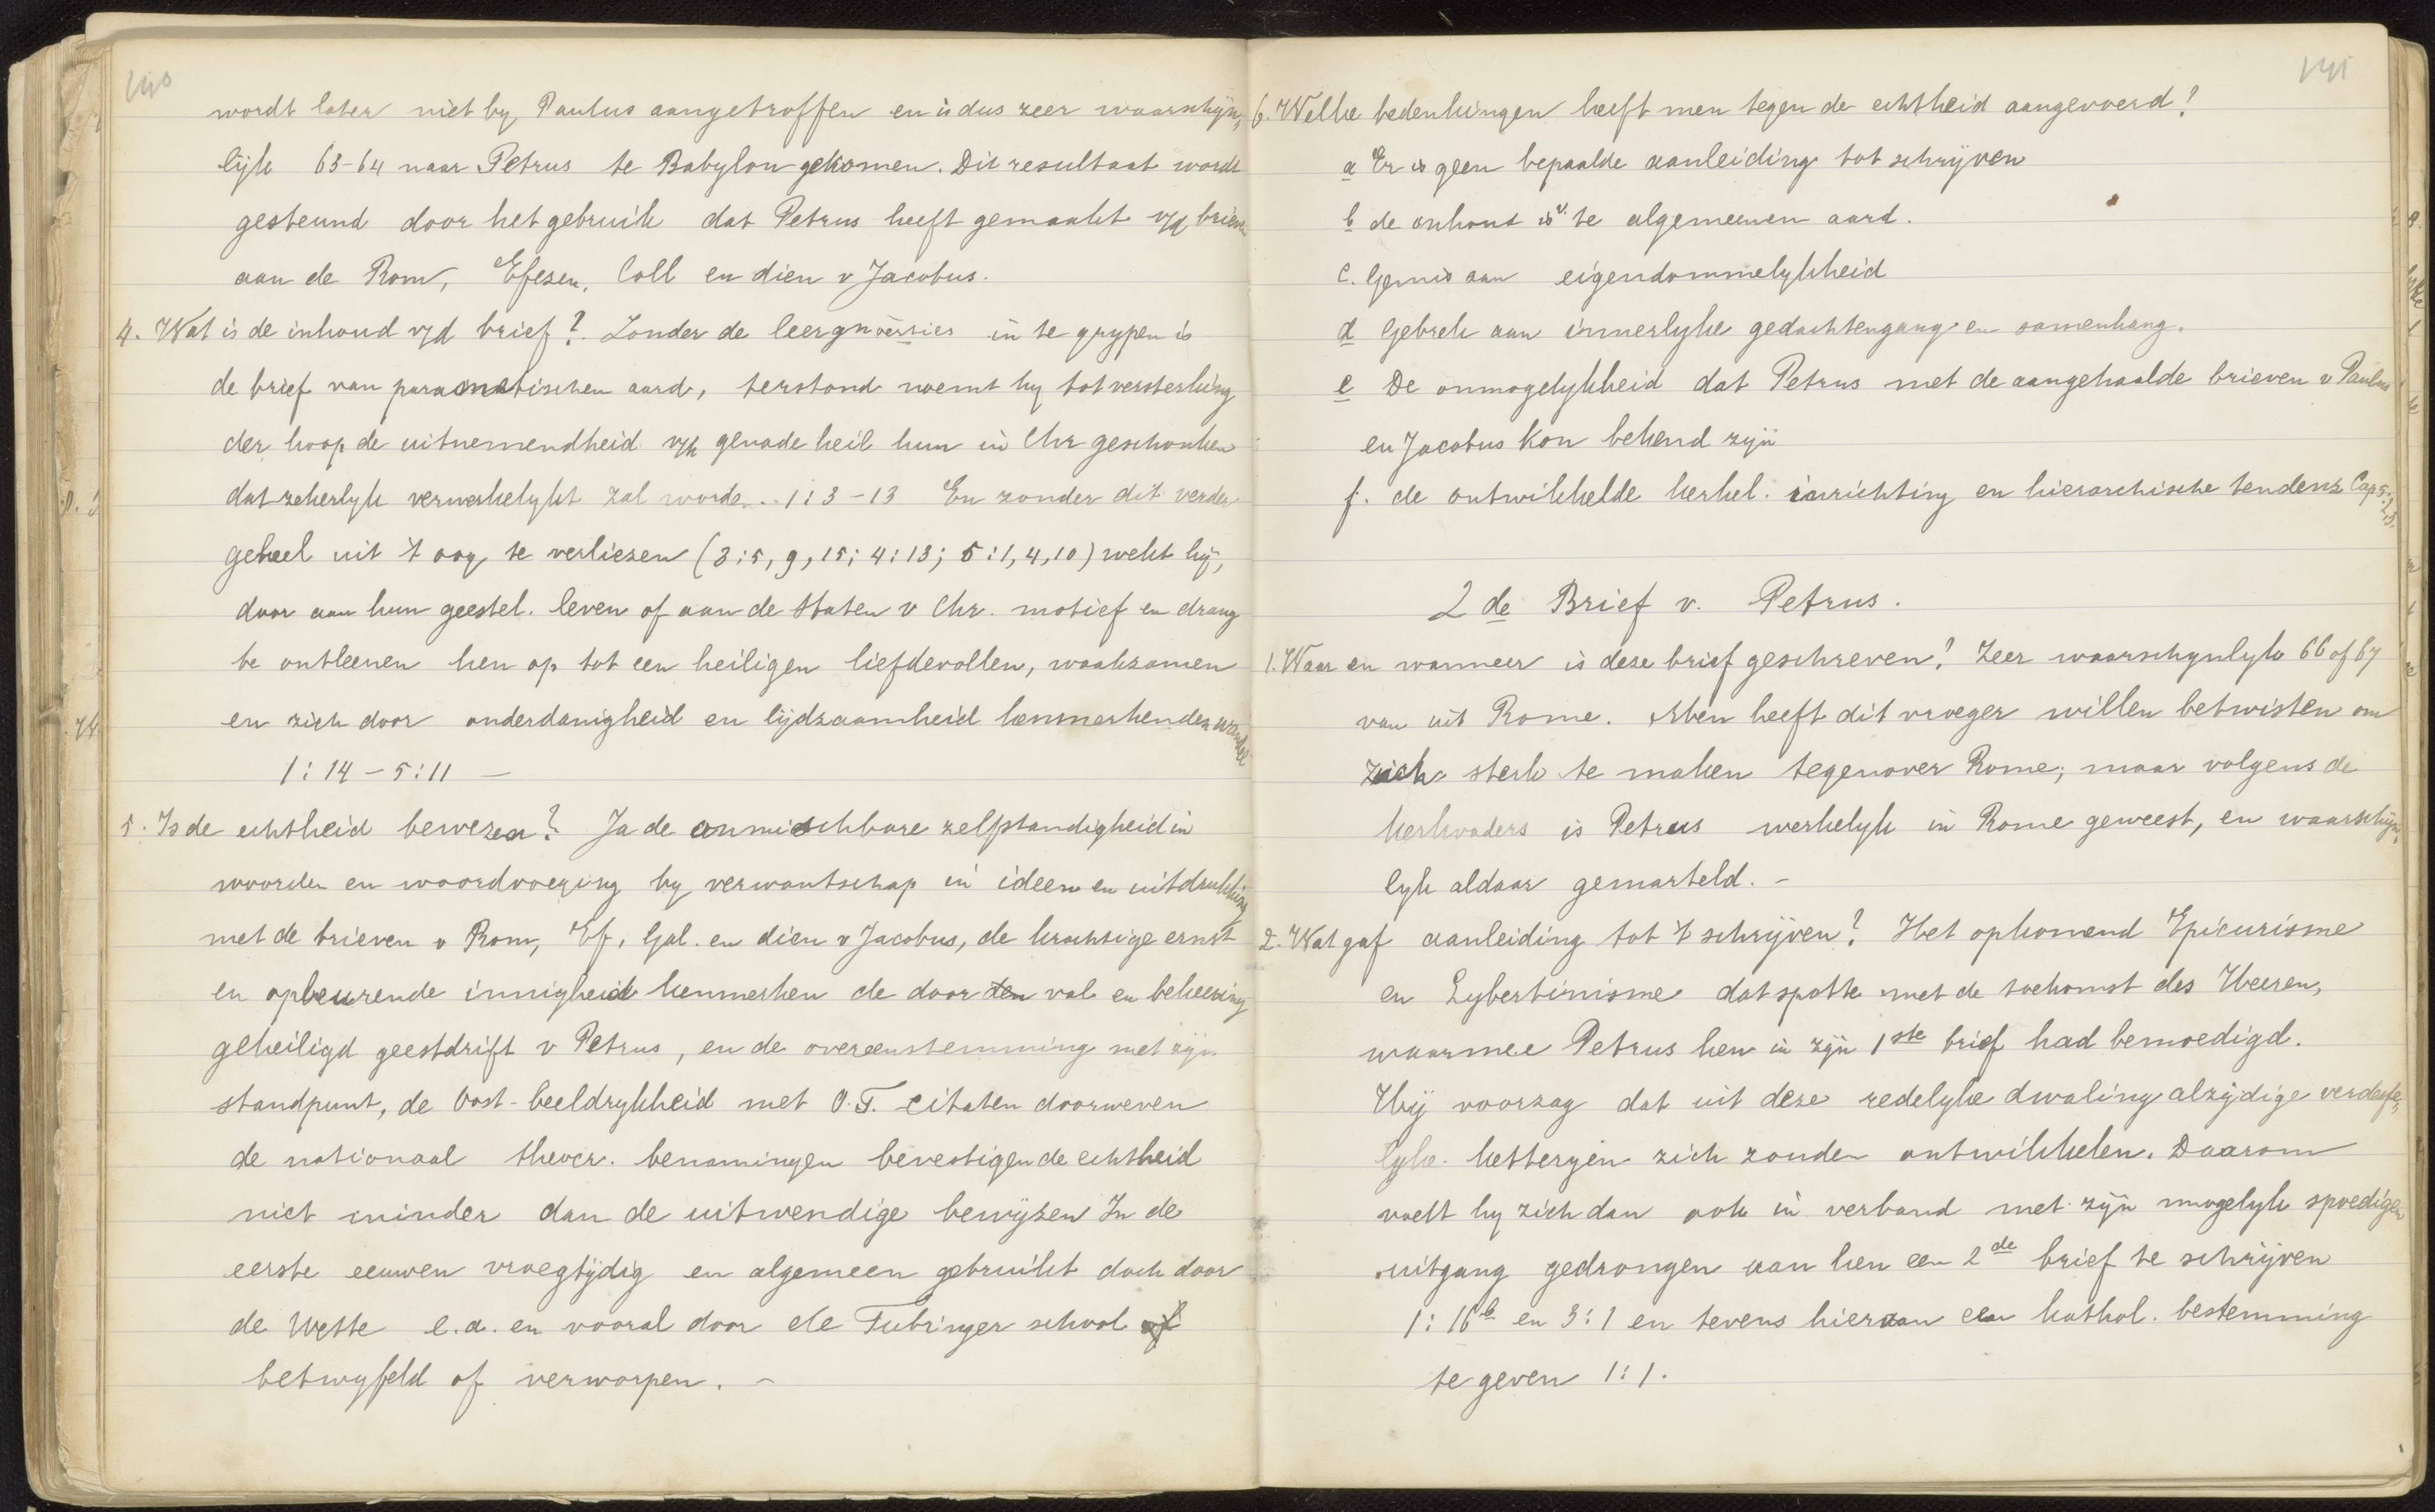 140
wordt later niet by Paulus aangetroffen en is dus zeer waarschijn,
lijk 63-64 naar Petrus te Babylon gekomen. Dit resultaat wordt
gesteund door het gebruik dat Petrus heeft gemaakt v/d brieven
aan de Rom, Efezen, Coll en dien v Jacobus.
4. Wat is de inhoud v/d brief? Zonder de leer in te grypen is
de brief van aard, terstond noemt hy tot versterking
der hoop de uitnemendheid v/h genade heil hun in Chr geschonken
dat zekerlyk verwerkelykt zal worden.. 1:3-13 En zonder dit verder
geheel uit 't oog te verliezen (3:5, 9, 15; 4:13; 5:1, 4, 10) wekt hij,
door aan hun geestel. leven of aan de staten v Chr. motief en drang
te ontleenen hen op tot een heiligen liefdevollen, waakzamen
en zich door onderdanigheid en lijdzaamheid kenmerkenden wandel
1:14-5:11 —
5. Is de echtheid bewezen? Ja de onmiskbare zelfstandigheid in
woorden en woordvoeging by verwantschap in ideen en uitdrukking
met de brieven v Rom, Ef, Gal. en dien v Jacobus, de krachtige ernst
en opbeurende innigheid kenmerken de door den val en bekeering
geheiligd geestdrift v Petrus, en de overeenstemming met zyn
standpunt, de Oost-beeldrykheid met O.T. citaten doorweven
de nationaal theocr. benamingen bevestigen de echtheid
niet minder dan de uitwendige bewijzen In de
eerste eeuwen vroegtijdig en algemeen gebruikt doch door
de Wette e.a. en vooral door de Tubinger school of
betwyfeld of verworpen. -
141
6. Welke bedenkingen heeft men tegen de echtheid aangevoerd?
a Er is geen bepaalde aanleiding tot schrijven
b de inhoud is v. te algemeenen aard.
c. Gemis aan eigendommelykheid
d Gebrek aan innerlyke gedachtengang en samenhang.
e De onmogelykheid dat Petrus met de aangehaalde brieven v Paulus
en Jacobus kon bekend zyn
f. de ontwikkelde kerkel. inrichting en hierarchische tendenz Cap 5:2,3.
2de Brief v. Petrus.
1. Waar en wanneer is deze brief geschreven? Zeer waarschynlyk 66 of 67
van uit Rome. Men heeft dit vroeger willen betwisten om
zich sterk te maken tegenover Rome; maar volgens de
kerkvaders is Petrus werkelyk in Rome geweest, en waarschijn,
lyk aldaar gemarteld. -
2. Wat gaf aanleiding tot 't schrijven? Het opkomend Epicurisme
en Lybertinisme dat spotte met de toekomst des Heeren,
waarmee Petrus hen in zijn 1ste brief had bemoedigd.
Hij voorzag dat uit deze redelyke dwaling alzijdige verderfe,
lyke. ketteryen zich zouden ontwikkelen. Daarom
voelt hy zich dan ook in verband met zijn mogelyk spoedigen
uitgang gedrongen aan hen een 2de brief te schrijven
1:16b en 3:1 en tevens hieraan een kathol. bestemming
te geven 1:1.